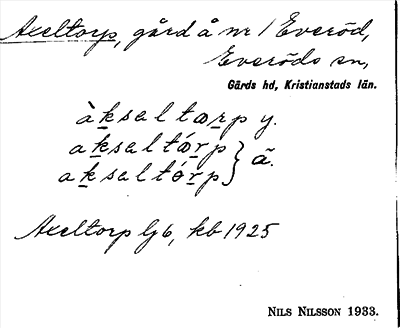 Axeltorp, gård å nr 1 Everöd,
Everöds sn,
Gärds hd, Kristianstads län.
àksaltœrp y.
aksaltǿrp } ã.
aksaltórp
Axeltorp lj 6, kb 1925
NILS NILSSON 1933.